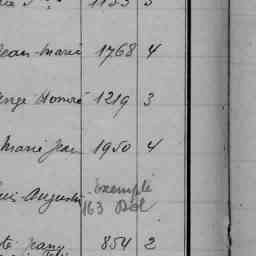 1153 3
Jean Marie 1768 4
Ange Honoré 1219 3
Marie Jean 1950 4
exempté
Augustin 163 Dol
Jean 854 2